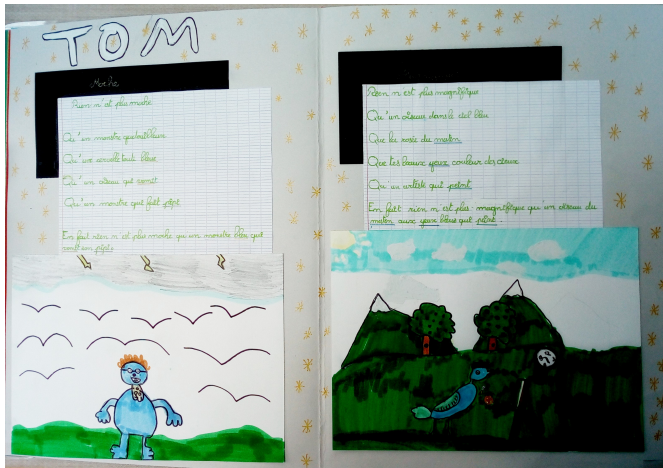 TOM
Moche
Rien n'est plus moche
Qu'un monstre
Qu'une toute bleue
Qu'un oiseau qui vomit
Qu'un monstre qui fait pipit
En fait rien n'est plus moche qu'un monstre bleu qui
vomit en pipit
Rien n'est plus magnifique
Qu'un oiseau dans le ciel bleu
Que la rosée du matin
Que tes beaux yeux couleur des cieux
Qu'un artiste qui peint
En fait rien n'est plus magnifique qu'un oiseau du
matin aux yeux bleus qui peint